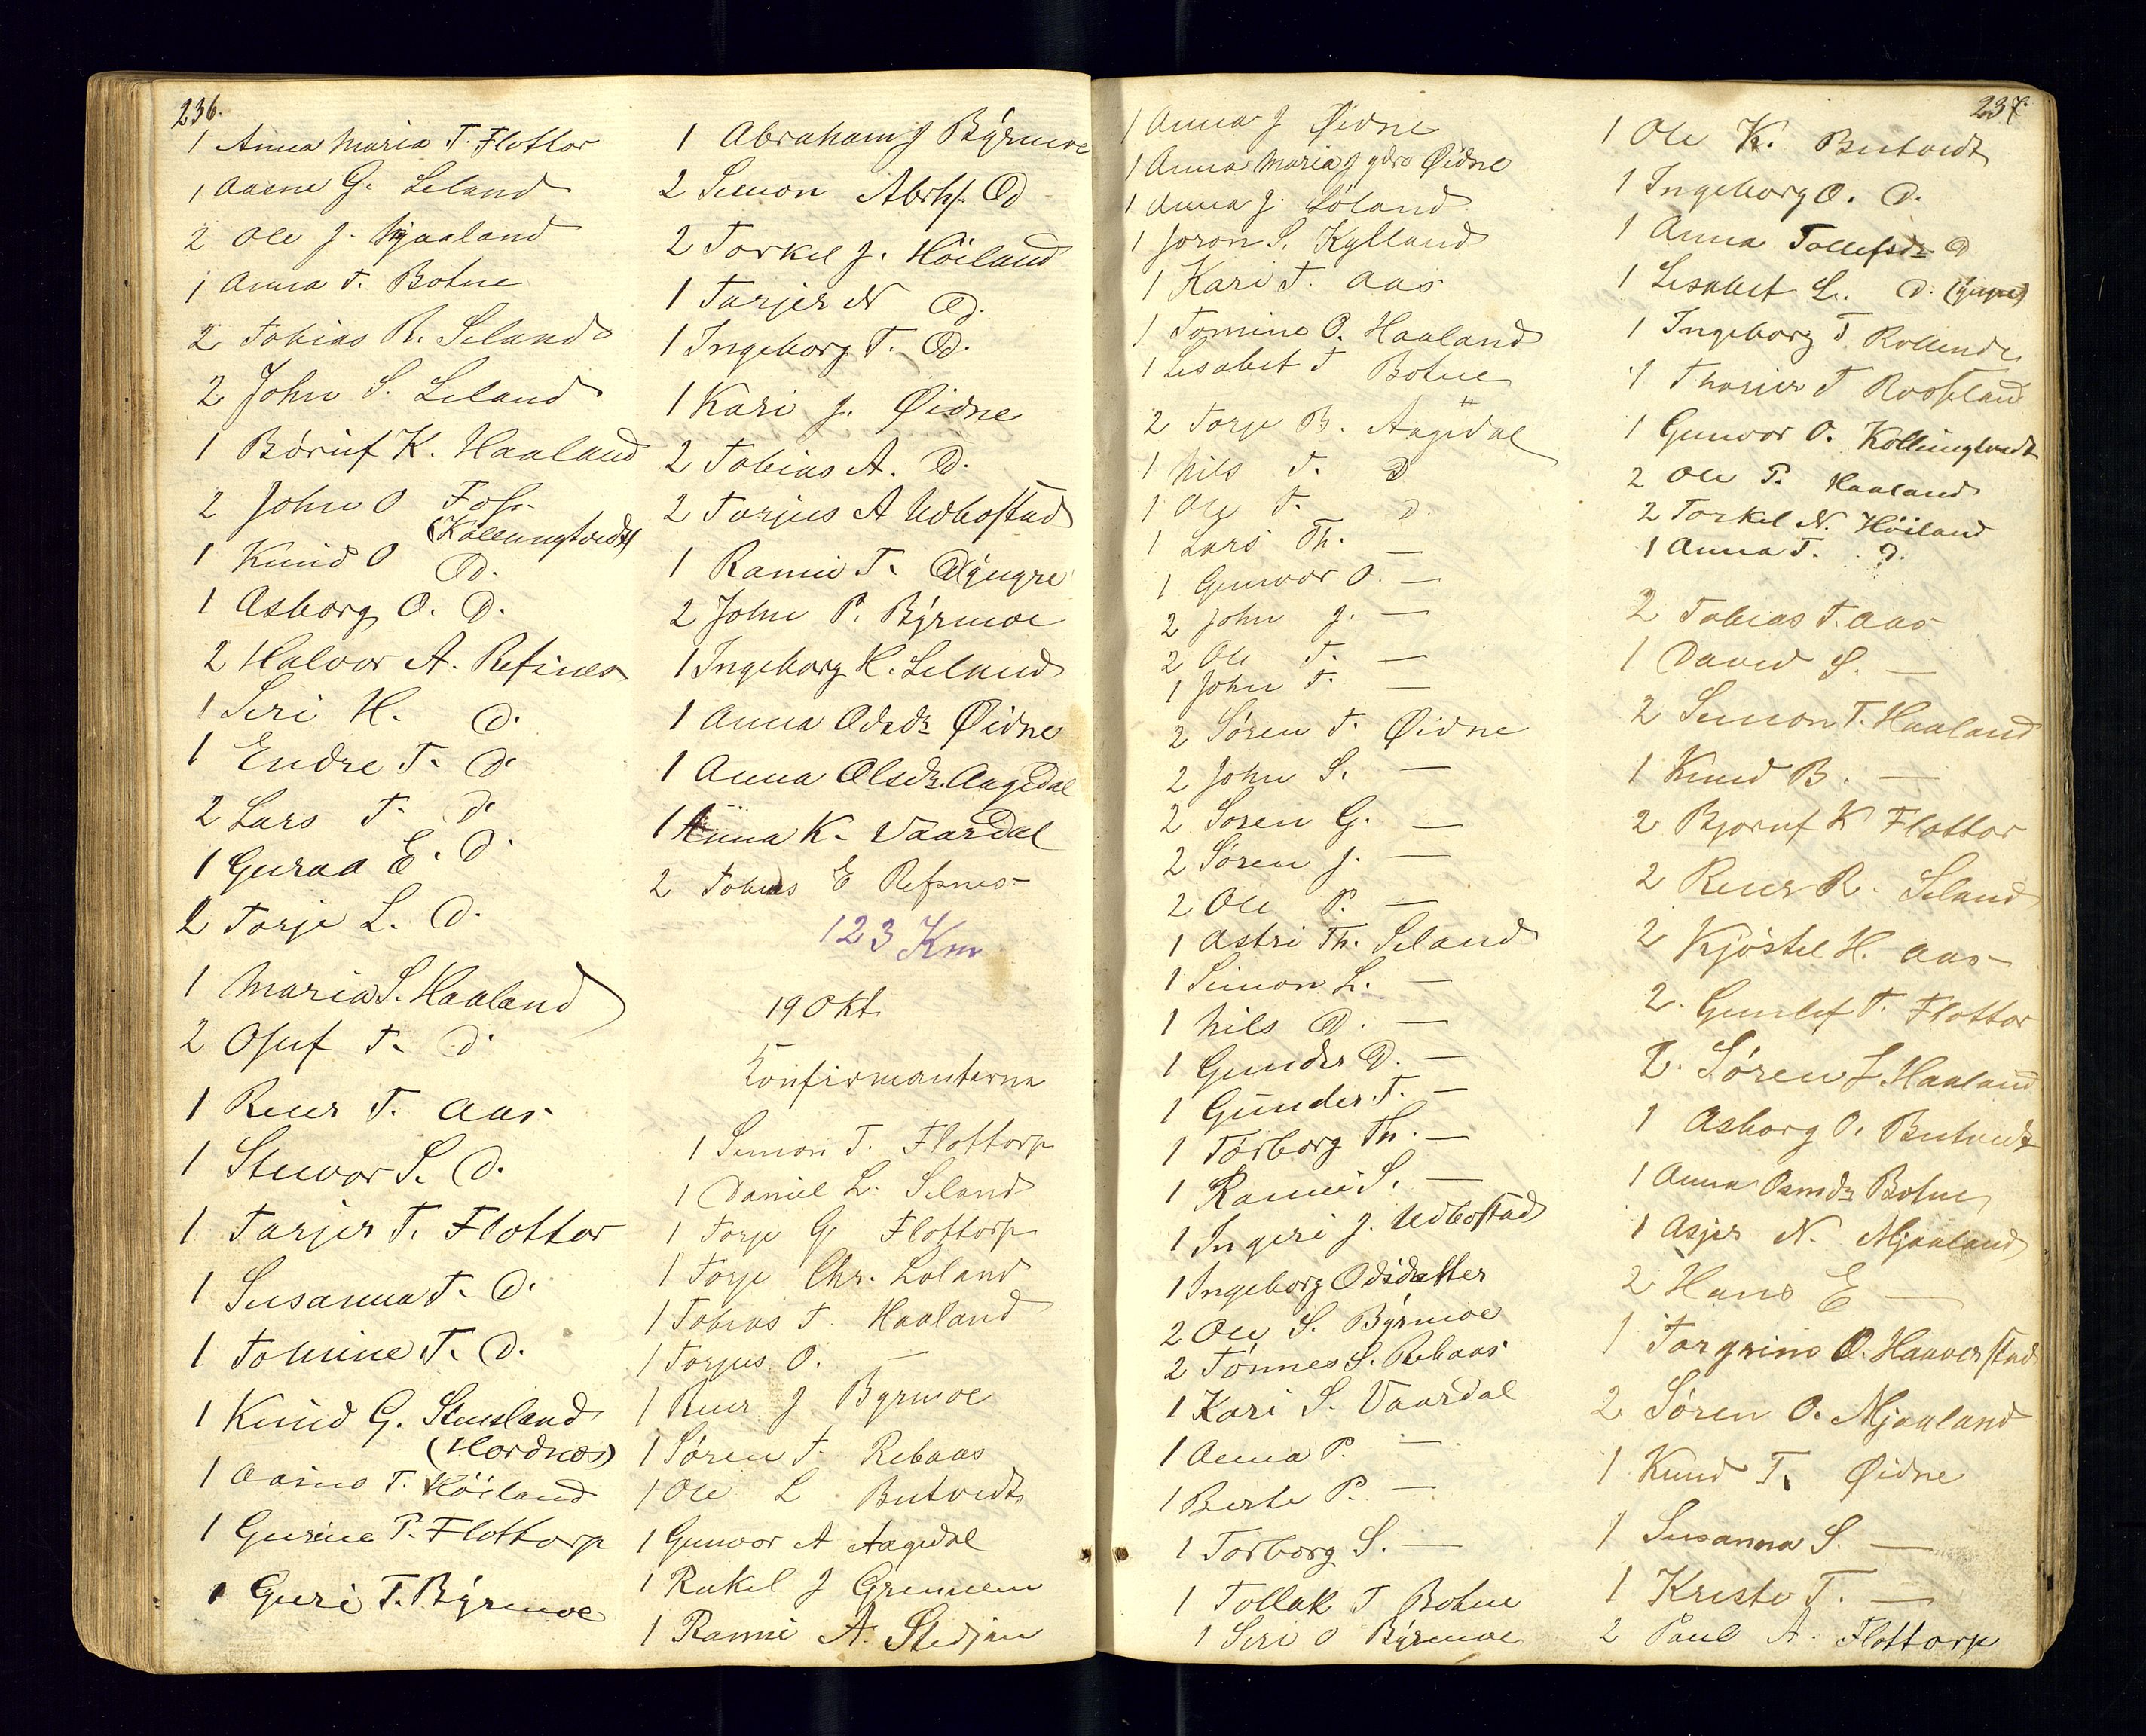 236.
1 Anna Maria T. Flottor
1 Aasne G. Leland
2 Ole J. Mjaaland
1 Anna T. Bohne
2 Tobias R. Seland
2 John S. Leland
1 Börüf K. Haaland
2 John O Foss
(Köllingtvedt)
1 Knud O D.
1 Asborg O. D.
2 Halvor A. Refsnes
1 Siri H. D.
1 Endre T. D.
2 Lars T. D.
1 Guroa E. D.
2 Torje L. D.
1 Maria S. Haaland
2 Osuf T. D.
1 Reier T. Aas
1 Stuvor S. D.
1 Tarjer T. Flottor
1 Susanna T. D.
1 Tomine T. D.
1 Knud G. Stensland
(Hordnes)
1 Aasne T. Höiland
1 Gurine P. Flottorp
1 Guri T. Byrmoe
1 Abraham J Byrmoe
2 Simon Abrhs. D
2 Torkel J. Höiland
1 Tarjer N D.
1 Ingeborg T. D.
1 Kari J. Øidne
2 Tobias A. D.
2 Torjus A Udbostad
1 Ranni T. Dyngre
2 John P. Byrmoe
1 Ingeborg H. Leland
1 Anna Odsdr Øidne
1 Anna Olsdr. Aagedal
1 Anna K. Vaardal
2 Tobias E Refsnes
123 Km
19 Okt
Konfirmanterne
1 Simon T. Flottorp
1 Daniel L. Seland
1 Torje G Flottorp
1 Torje Chr. Loland
1 Tobias T. Haaland
1 Torjus O. —
1 Reier J Byrmoe
1 Sören T. Rebaas
1 Ole L Butvedt
1 Gunvor A Aagedal
1 Rakel J Grennem
1 Ranni A. Stedjan
237.
1 Anna J Øidne
1 Anna Maria J ydre Øidne
1 Anna J. Loland
1 Joron S. Kylland
1 Kari T. Aas
1 Tomine O. Haaland
1 Lisabet T Bohne
2 Torje B. Aagedal
1 Nils T. D
1 Ole T. D.
1 Lars Th. —
1 Gunvor O. —
2 John J. —
2 Ole T. —
1 John T. —
2 Sören T. Øidne
2 John S. —
2 Soren G. —
2 Sören J. —
2 Ole P. —
1 Astri Th. Seland
1 Simon L. —
1 Nils D. —
1 Gunder D. —
1 Gunder T. —
1 Torborg Th. —
1 Ranni S. —
1 Ingeri J. Udbostad
1 Ingeborg Odsdatter
2 Ole S. Byrmoe
2 Tönnes S. Rebaas
1 Kari S. Vaardal
1 Anna P. —
1 Berte P. —
1 Torborg S. —
1 Tollak T Bohne
1 Siri O Byrmoe
1 Ole K. Butvedt
1 Ingeborg O. D.
1 Anna Tollefsdr. D
1 Lisabet L. D.
1 Ingeborg T
1 Thorier T Rossland
1 Gunvor O. Köllingtvedt
2 Ole P. Haaland
2 Torkel N. Höiland
1 Anna T. D.
2 Tobias T. Aas
1 David S. —
2 Simon T. Haaland
1 Knud B. —
2 Bjoruf K Flottor
2 Reier R. Seland
2 Kjöstel H. Aas
2. Gunlef T. Flottor
2. Sören L. Haaland
1 Asborg O. Butvedt
1 Anna Osmdr Bohne
1 Asjer N. Mjaaland
2 Hans E —
1 Torgrims O. Haaverstad
2 Sören O. Mjaaland
1 Knud T. Øidne
1 Susanna S. —
1 Kristo T. —
2 Paul A. Flottorp